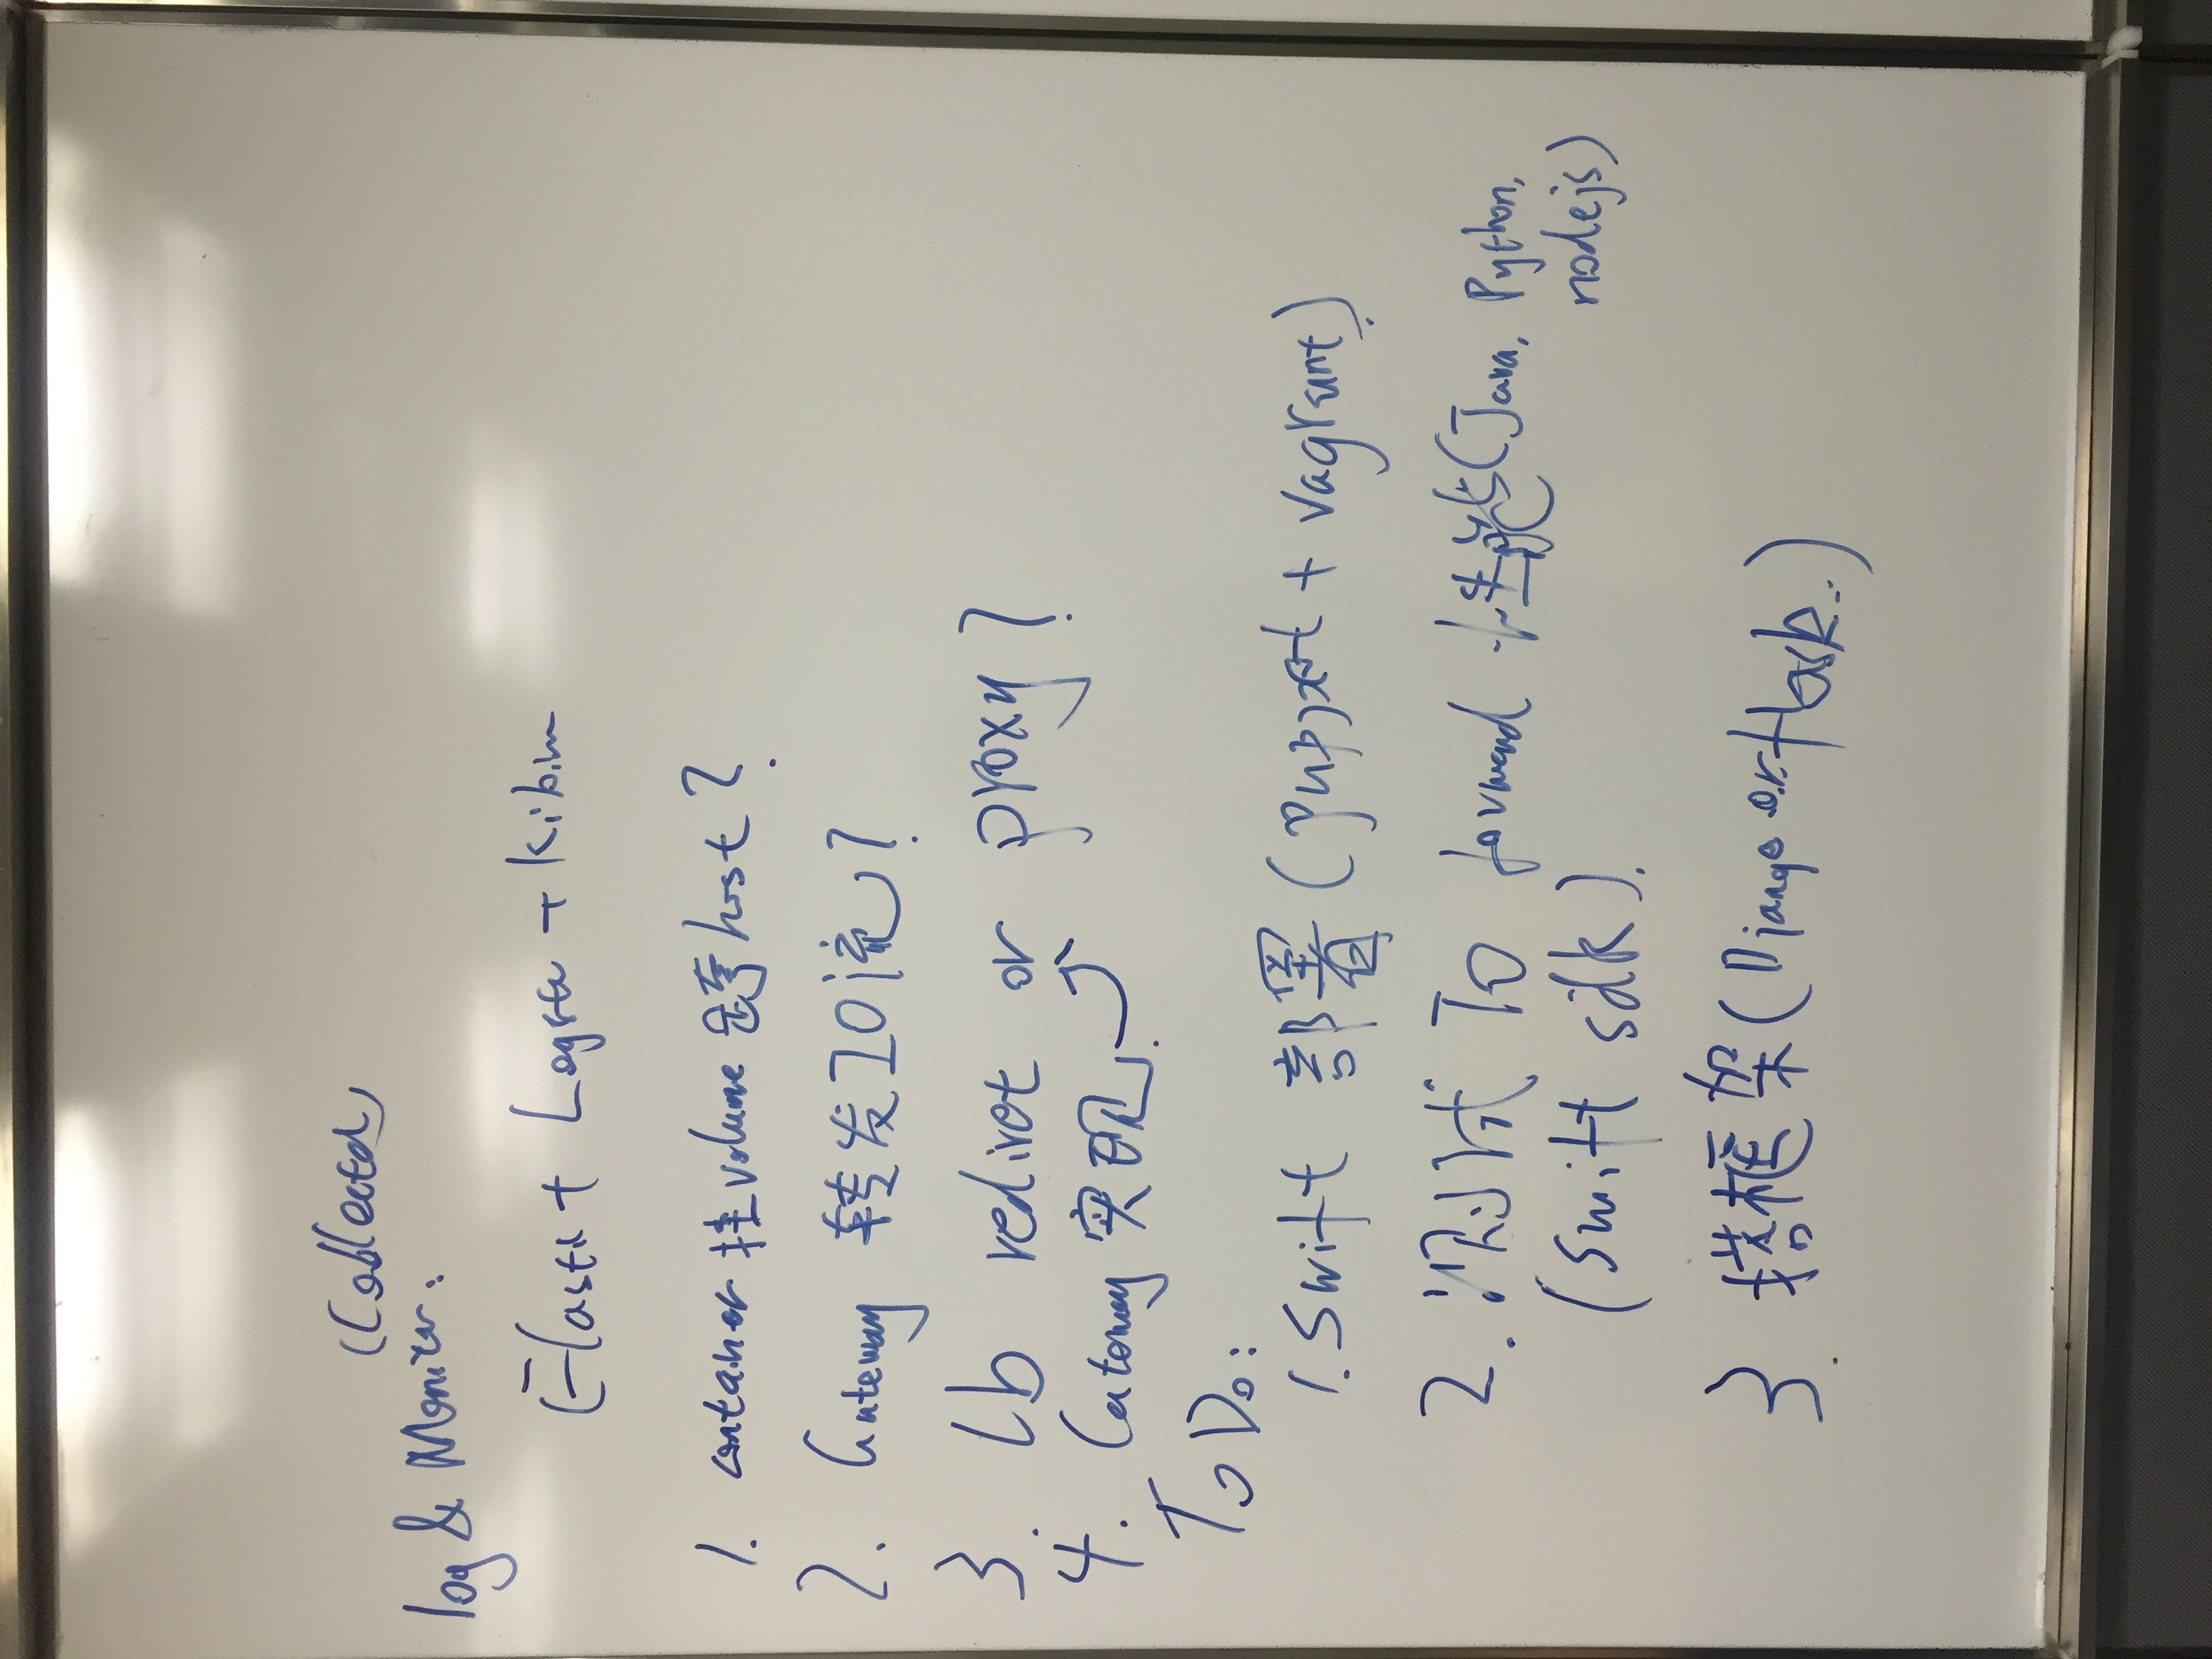 (Collectd)
log & Monitor:
Elastic + Logsta + Kibana
1. container 挂 volume 跨 host ?
2. Gateway 转发 IO 流 ?
3. Lb rediret or proxy ?
4. Gateway 实现.
To Do:
1. Swift 部署 (puppet + vagrant).
2. 测试 IO forward 性能 (Java, Python,
nodejs)
(Swift sdk).
3. 搭框架 (Django or flask..)